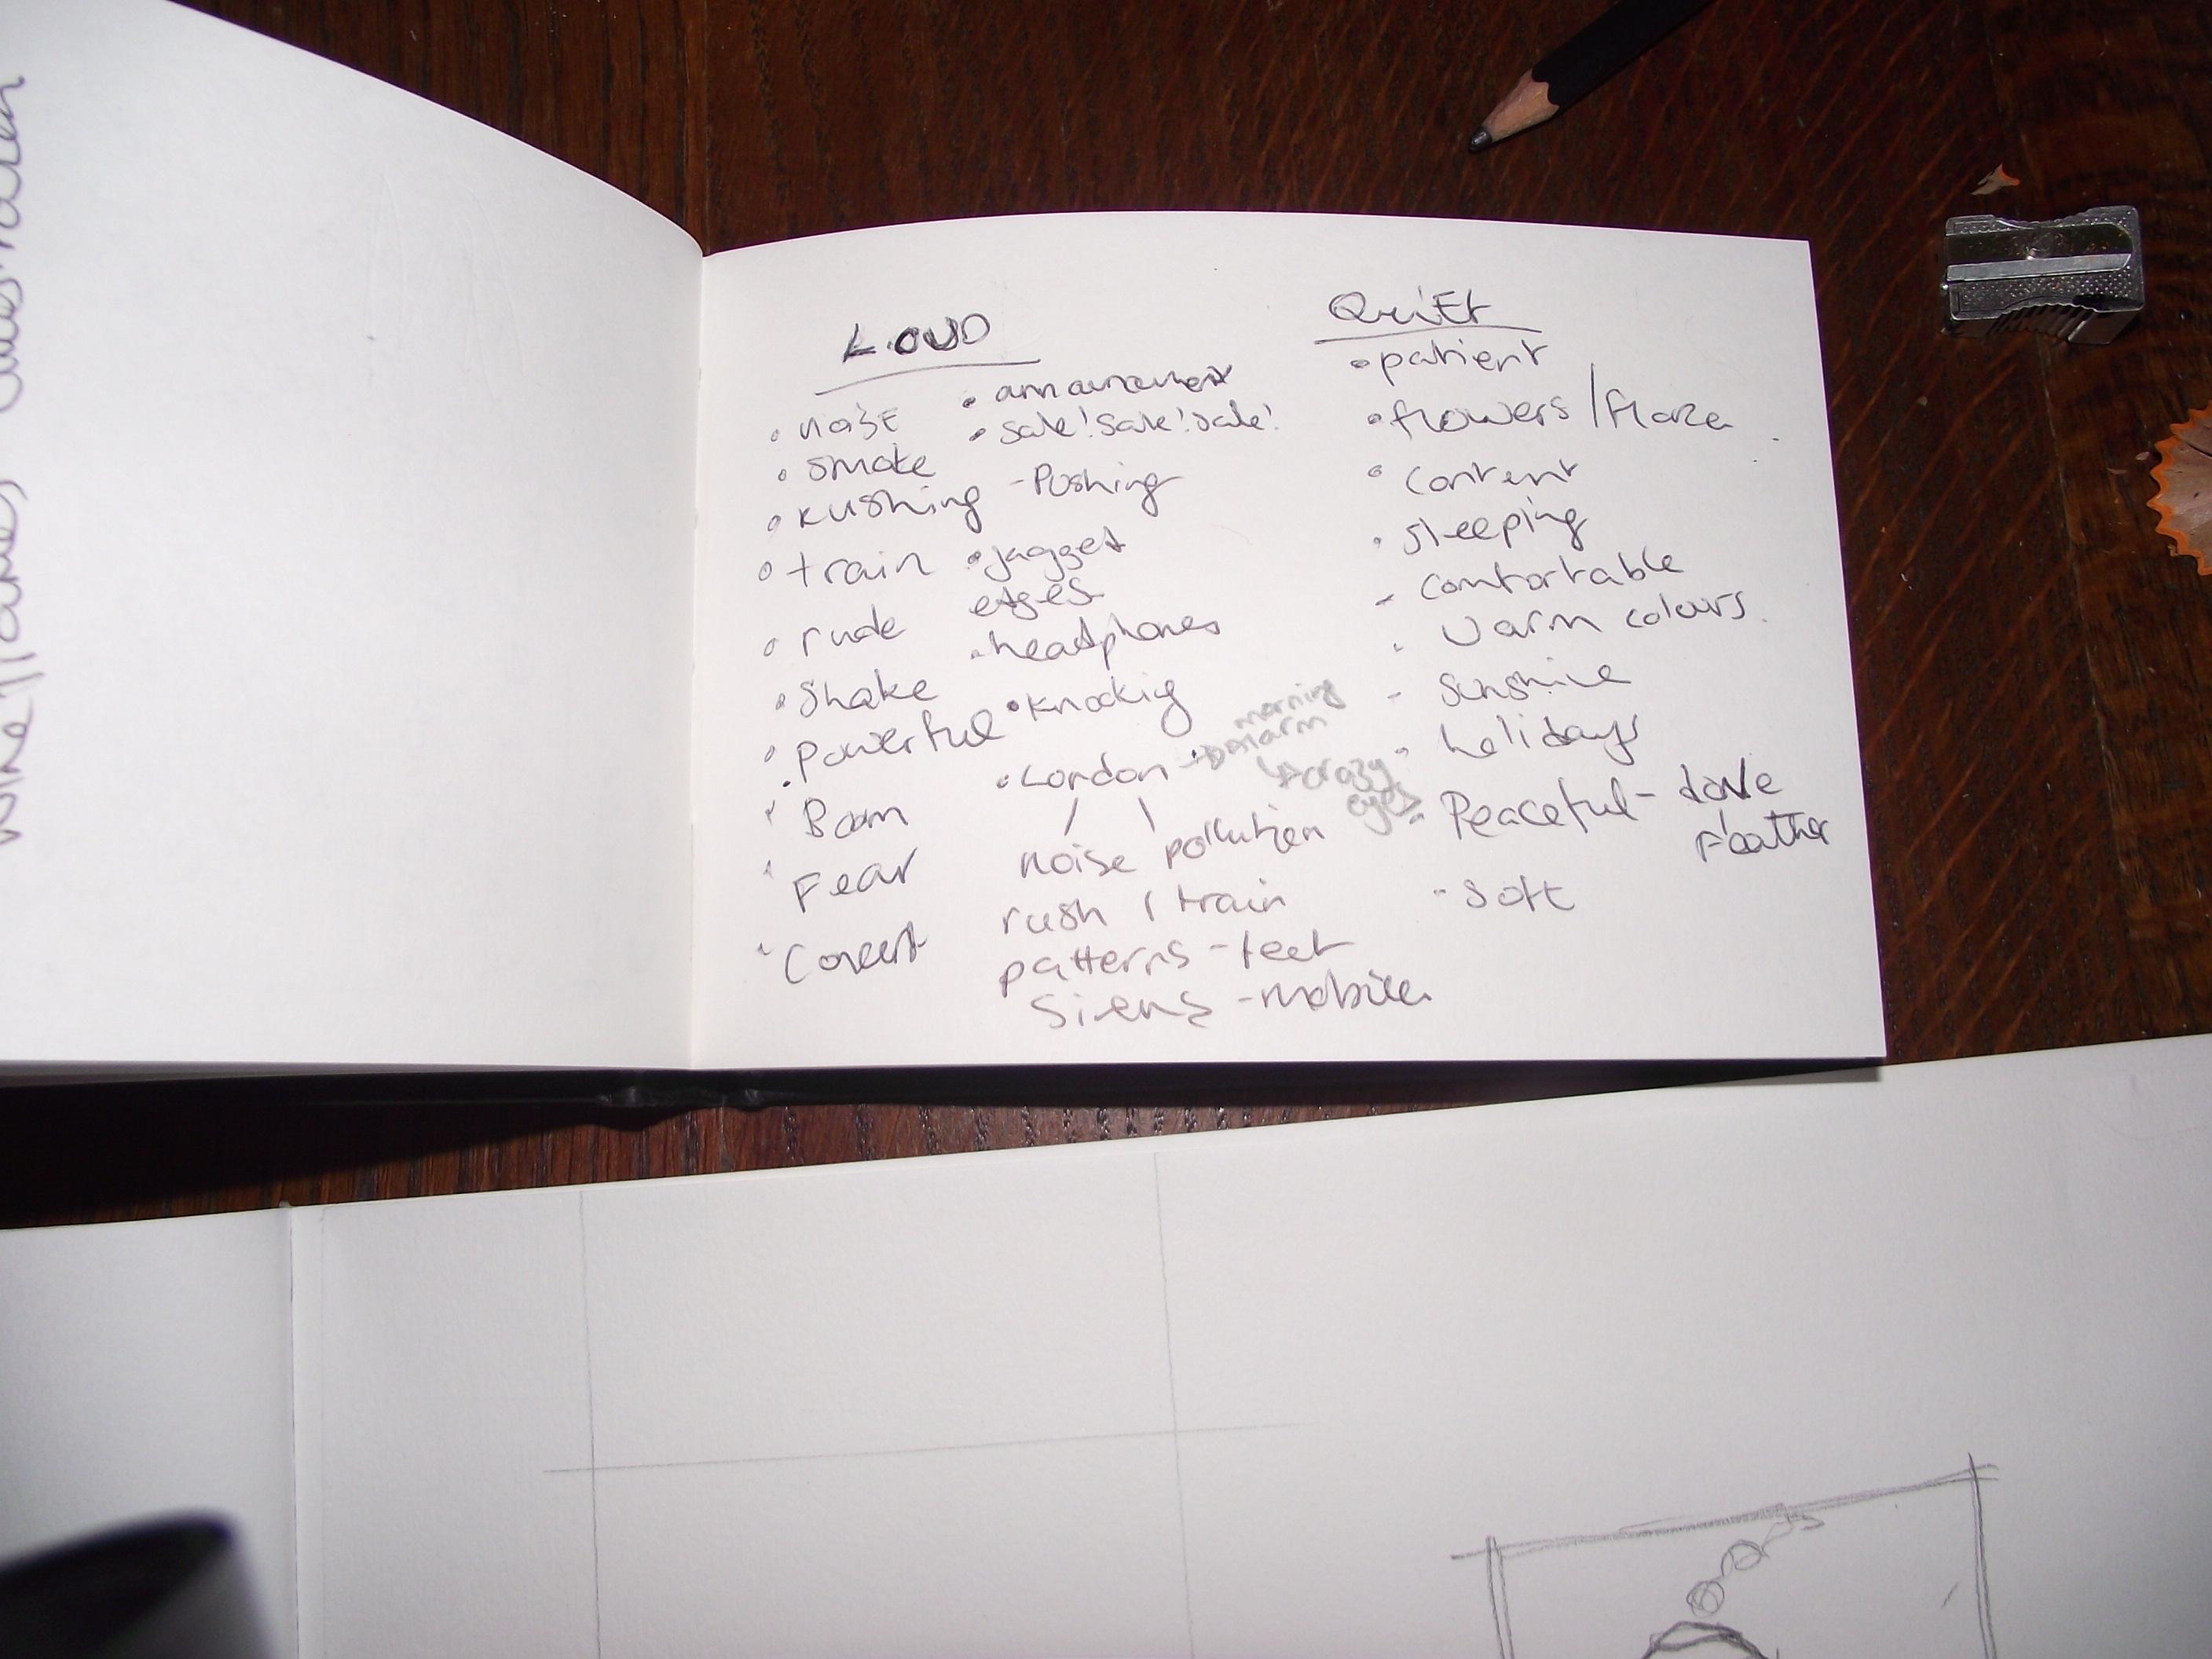 LOUD
• noise
• smoke
• rushing - Pushing
• train
• rude
• shake
• powerful
• Boom
• Fear
• Concert
• sale! sale! sale!
• jagget
edges
• headphones
• knocking
• London → morning
alarm
↳ crazy
eyes
noise pollution
rush / train
patterns - feet
Sirens - mobile
QuiEt
• patient
• flowers /
• content
• sleeping
- comfortable
• warm colours.
- sunshine
• holidays
• Peaceful - dove
feather
- soft